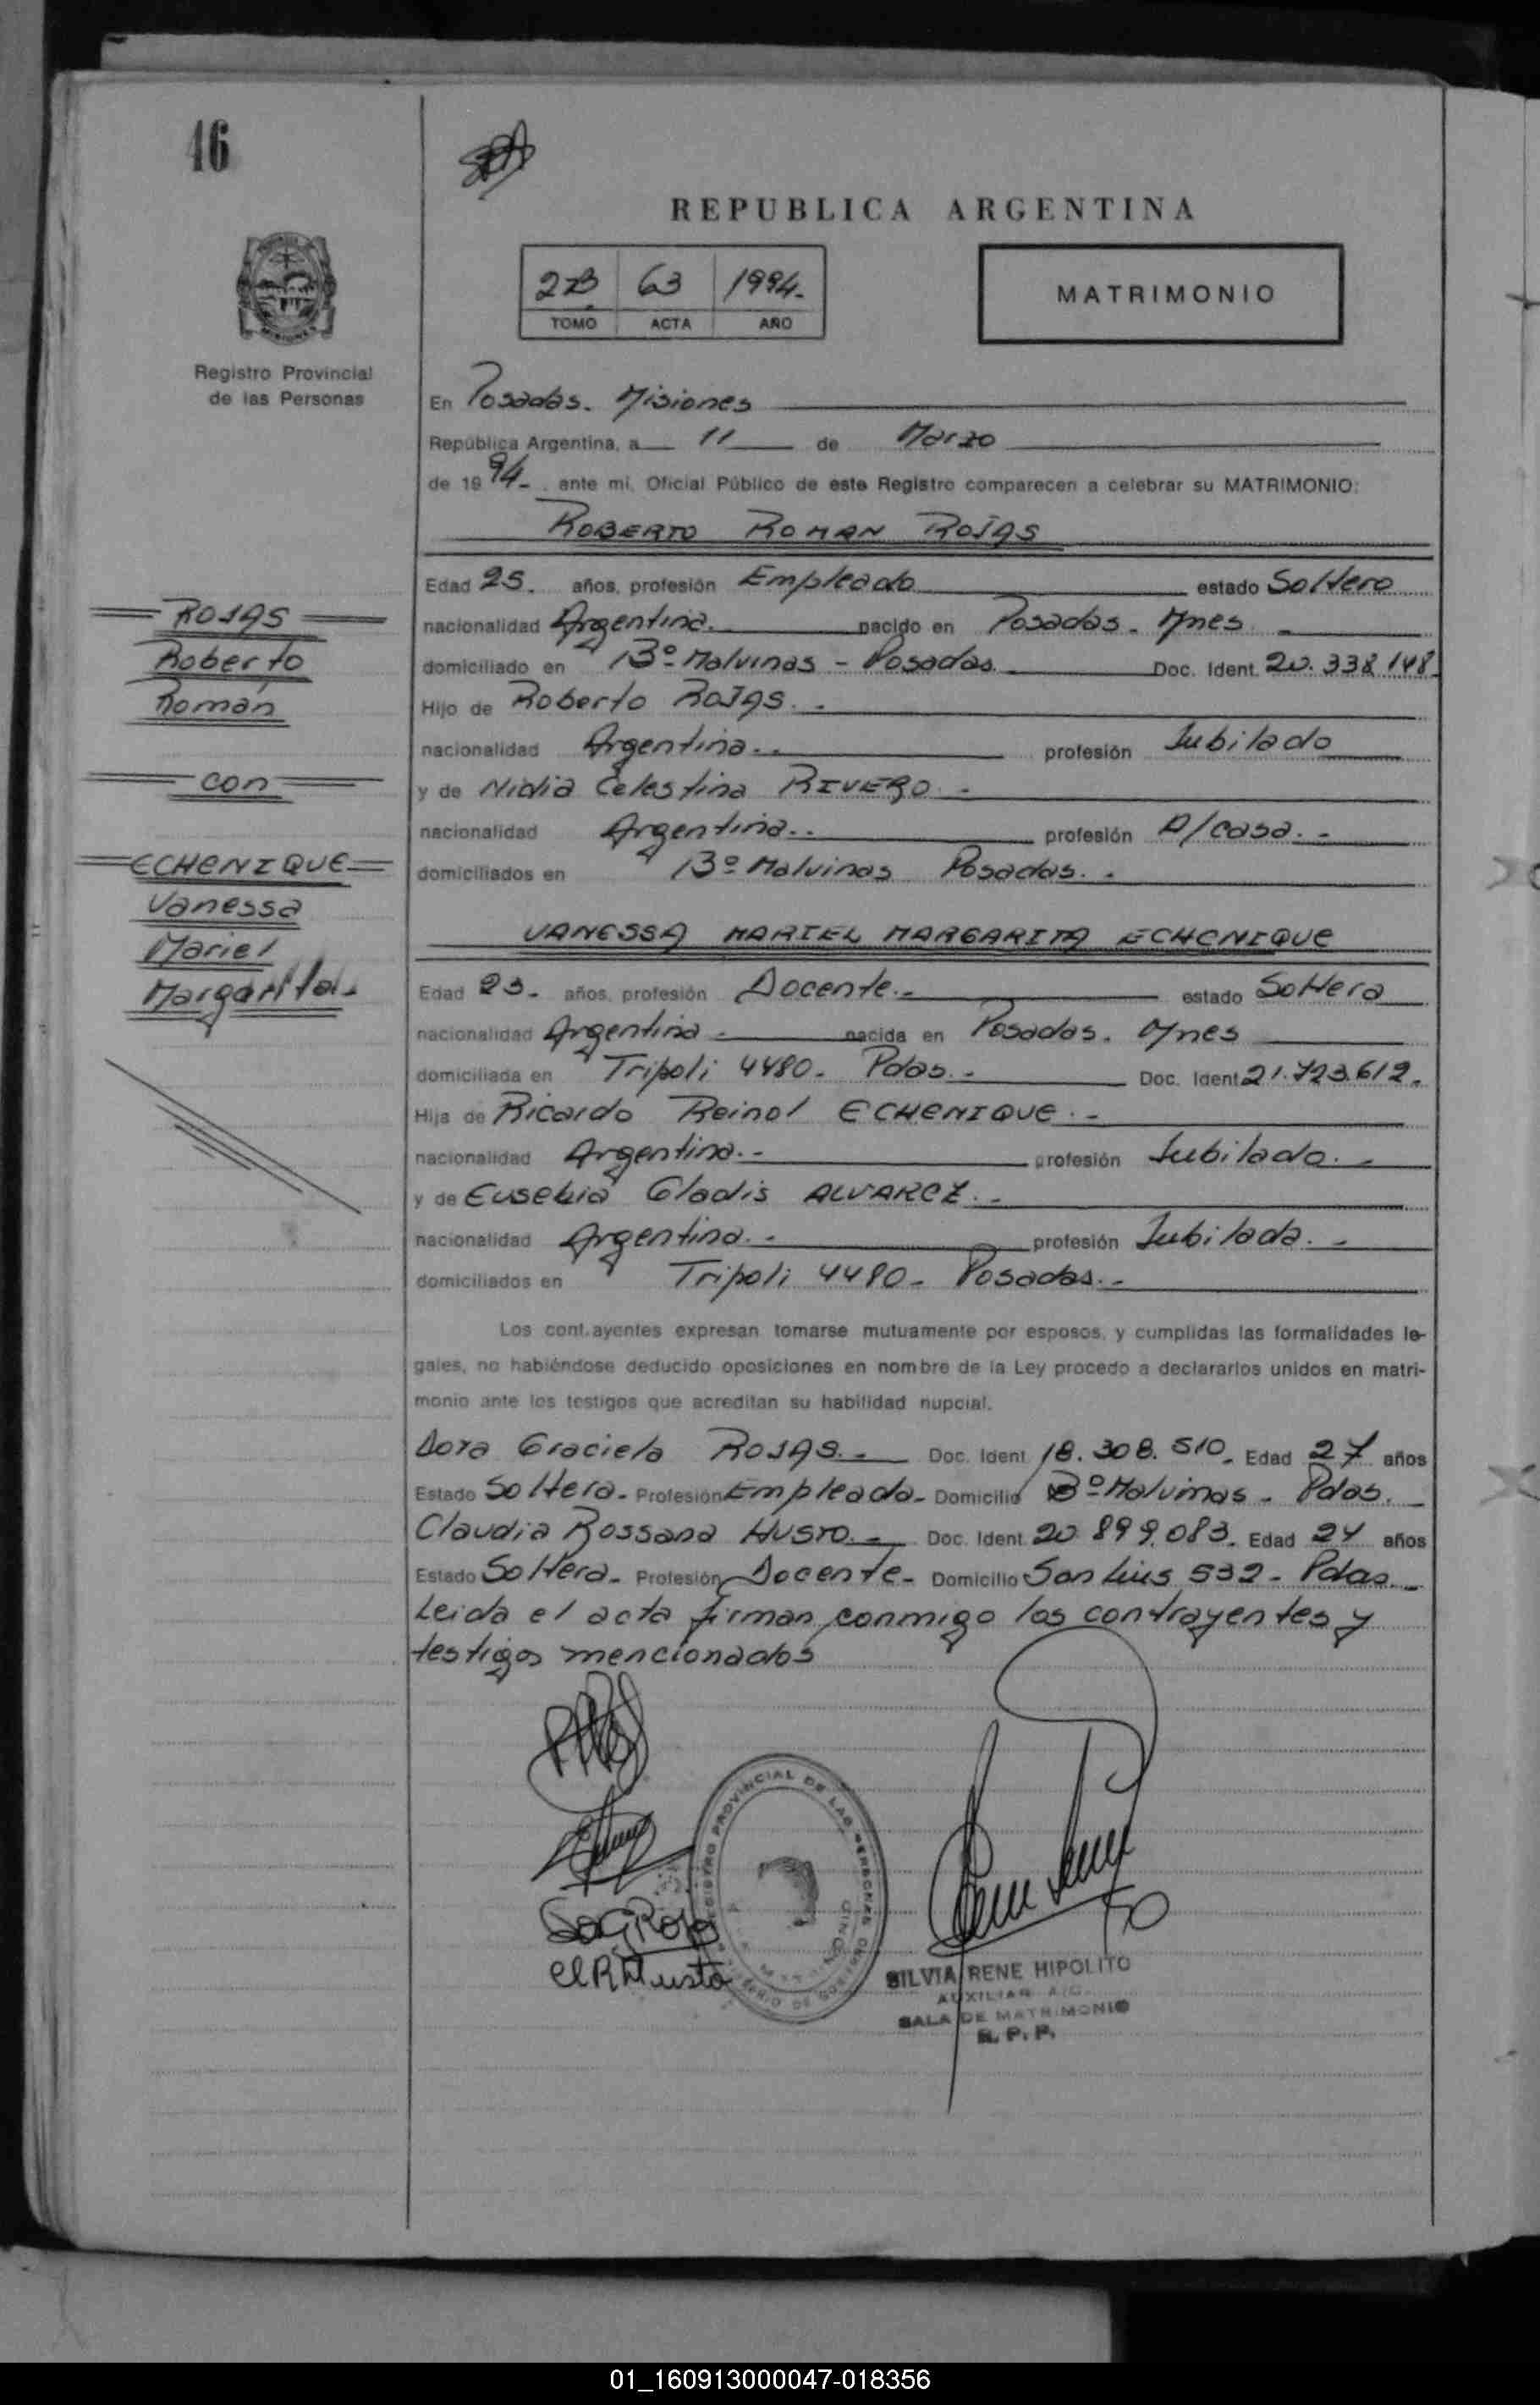 46
REPUBLICA ARGENTINA
2 B 63 1994.-
TOMO ACTA AÑO
MATRIMONIO
Registro Provincial
de las Personas
En Posadas. Misiones
República Argentina, a 11 de Marzo
de 1994.- ante mi, Oficial Público de este Registro comparecen a celebrar su MATRIMONIO:
ROBERTO ROMAN ROJAS
Edad 25. años, profesión Empleado estado Soltero
nacionalidad Argentina. nacido en Posadas - Mnes -
domiciliado en Bº Malvinas - Posadas Doc. Ident. 20.338.148
Hijo de Roberto ROJAS. -
nacionalidad Argentina.- profesión Jubilado
y de Nidia Celestina RIVERO. -
nacionalidad Argentina.. profesión A/casa. -
domiciliados en Bº Malvinas Posadas. -
ROJAS
Roberto
Román
con
ECHENIQUE
Vanessa
Mariel
Margarita.-
VANESSA MARIEL MARGARITA ECHENIQUE
Edad 23.- años, profesión Docente.- estado Soltera
nacionalidad Argentina - nacida en Posadas. Mnes
domiciliada en Tripoli 4480.- Pdas.- Doc. Ident 21.723.612.
Hija de Ricardo Reinol ECHENIQUE.-
nacionalidad Argentina.- profesión Jubilado.-
y de Eusebia Gladis ALVAREZ.-
nacionalidad Argentina.- profesión Jubilada.-
domiciliados en Tripoli 4480.- Posadas.-
Los contrayentes expresan tomarse mutuamente por esposos, y cumplidas las formalidades le-
gales, no habiéndose deducido oposiciones en nombre de la Ley procedo a declararlos unidos en matri-
monio ante los testigos que acreditan su habilidad nupcial.
Dora Graciela ROJAS.- Doc. Ident 18.308.510.- Edad 27 años
Estado Soltera.- Profesión Empleada- Domicilio Bº Malvinas - Pdas.
Claudia Rossana HUSTO.- Doc. Ident. 20.899.083. Edad 24 años
Estado Soltera.- Profesión Docente- Domicilio San Luis 532 - Pdas.-
Leida el acta firman conmigo los contrayentes y
testigos mencionados
REGISTRO PROVINCIAL DE LAS PERSONAS
SILVIA RENE HIPOLITO
AUXILIAR A/C.
SALA DE MATRIMONIO
R. P. P.
01_160913000047-018356